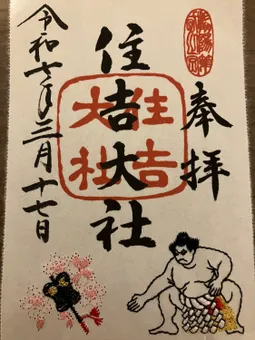 奉拝
住吉大社
住吉
大社
令和七年三月十七日